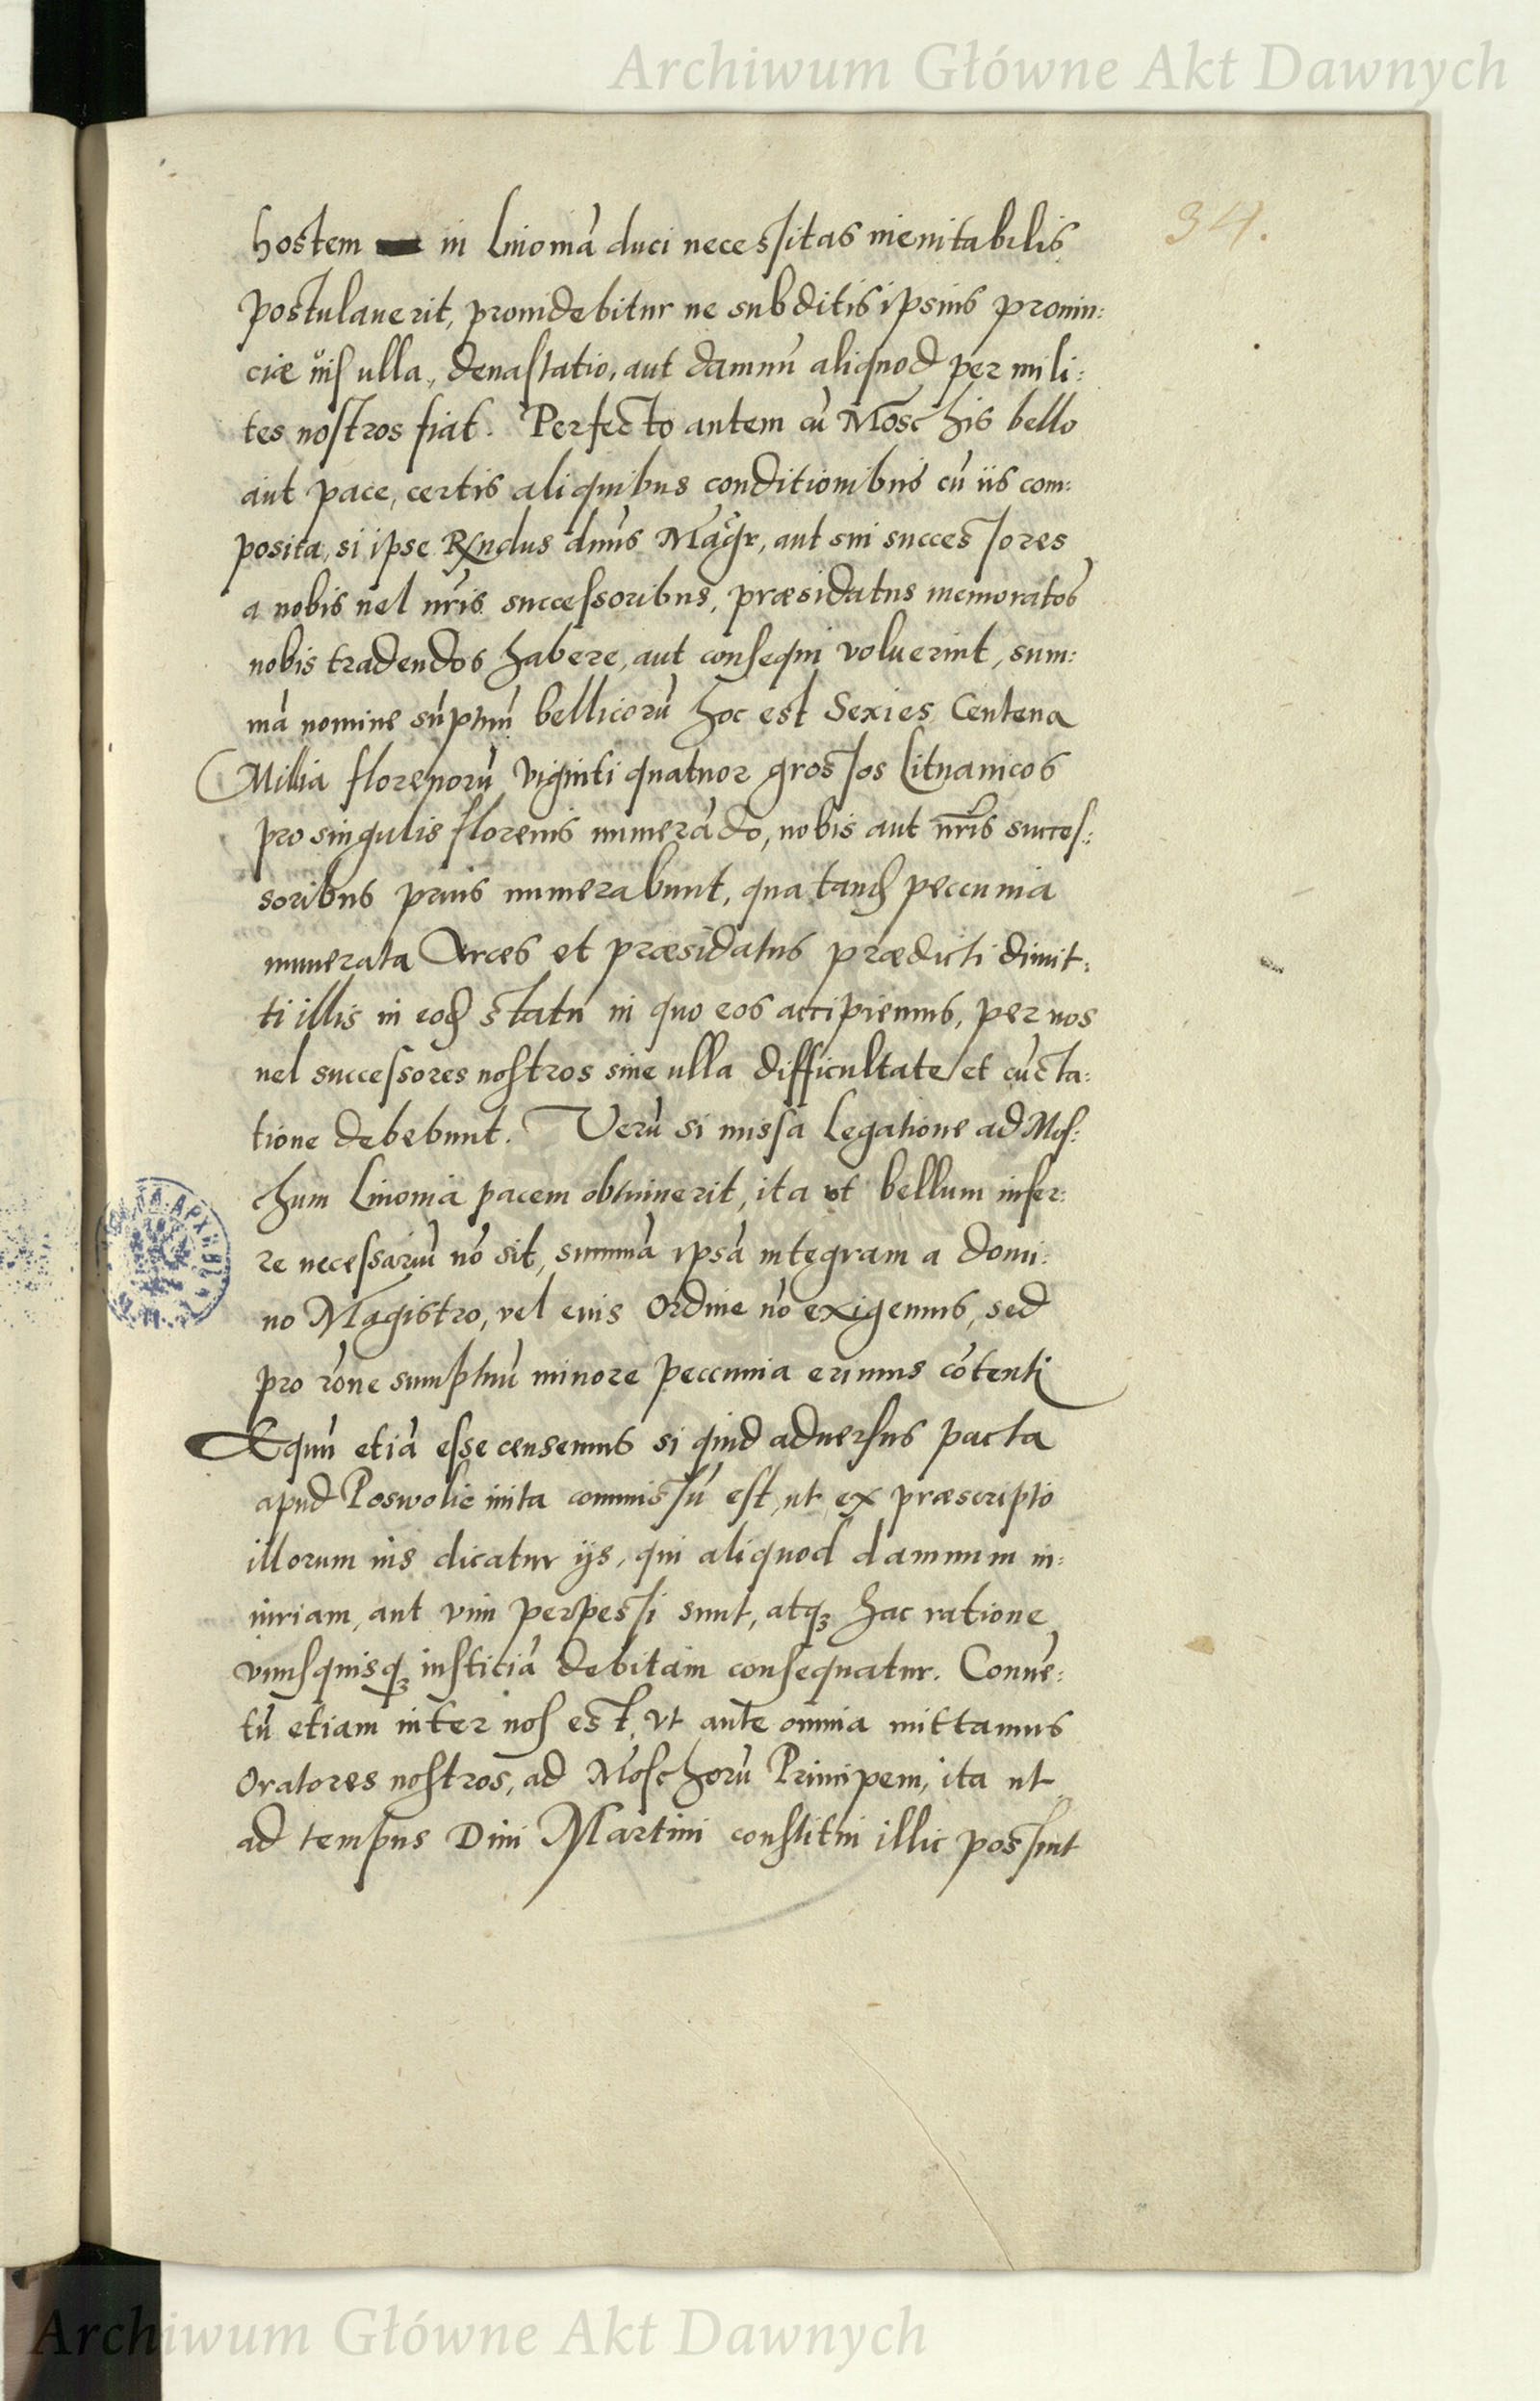 Archiwum Główne Akt Dawnych
34.
hostem in Liuoniā duci necessitas ineuitabilis
postulauerit, prouidebitur ne subditis ipsius prouin:
ciæ uis ulla, deuastatio, aut damnū aliquod per mili:
tes nostros fiat. Perfecto autem cū Moschis bello
aut pace, certis aliquibus conditionibus cū iis com:
posita, si ipse Rndus dnus Magr, aut sui successores
a nobis uel nris successoribus, præsidatus memoratos
nobis tradendos habere, aut consequi voluerint, sum:
mā nomine sūptuū bellicorū hoc est Sexies Centena
Millia florenorū viginti quatuor grossos Lituanicos
pro singulis florenis numerādo, nobis aut nris succes:
soribus prius numerabunt, qua tandē peccunia
numerata Arces et præsidatus prædicti dimit:
ti illis in eodē statu in quo eos accipiemus, per nos
uel successores nostros sine ulla difficultate et cūcta:
tione debebunt. Verū si missa Legatione ad Mos:
chum Liuonia pacem obtinuerit, ita ut bellum infer:
re necessariū nō sit, summā ipsā integram a domi:
no Magistro, vel eius Ordine nō exigemus, sed
pro rōne sumptuū minore peccunia erimus cōtenti
Æquū etiā esse censemus si quid aduersus pacta
apud Poswolie inita commissū est, ut ex præscripto
illorum ius dicatur ijs, qui aliquod damnum in:
iuriam, aut vim perpessi sunt, atq3 hac ratione
vnusquisq3 iusticiā debitam consequatur. Conuē:
tū etiam inter nos est, vt ante omnia mittamus
Oratores nostros, ad Moschorū Principem, ita ut
ad tempus Diui Martini constitui illic possint
Archiwum Główne Akt Dawnych